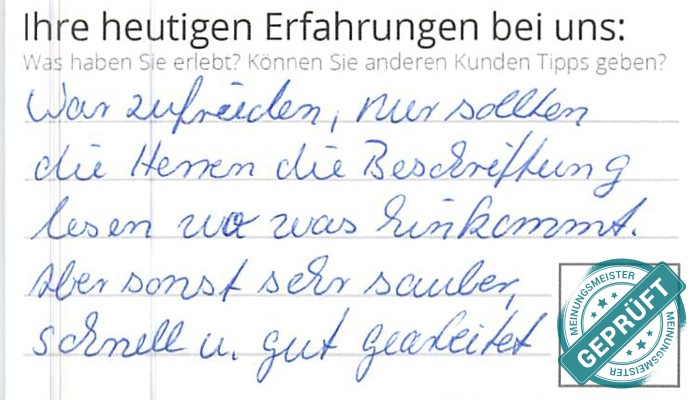 Ihre heutigen Erfahrungen bei uns:
Was haben Sie erlebt? Können Sie anderen Kunden Tipps geben?
War zufrieden, nur sollten
die Herren die Beschriftung
lesen wo was hinkommt.
Aber sonst sehr sauber,
schnell u. gut gearbeitet
MEINUNGSMEISTER
GEPRÜFT
MEINUNGSMEISTER
MEINUNGSMEISTER